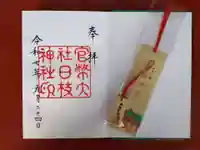 奉拝
官幣大
社日枝
神社印
令和七年 月二十四日